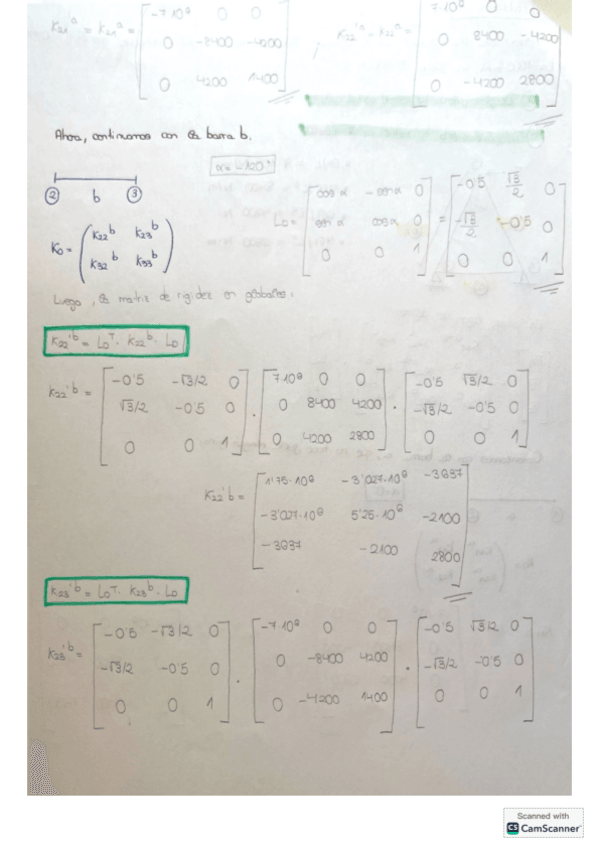 K21'ᵃ = K21ᵃ = [-7·10⁸ 0 0; 0 -8400 -4200; 0 4200 1400] ; K22'ᵃ = K22ᵃ = [7·10⁸ 0 0; 0 8400 -4200; 0 -4200 2800]
Ahora, continuamos con la barra b.
α = -120°
② b ③
L0 = [cos α -sen α 0; sen α cos α 0; 0 0 1] = [-0'5 √3/2 0; -√3/2 -0'5 0; 0 0 1]
K0 = (K22ᵇ K23ᵇ; K32ᵇ K33ᵇ)
Luego, la matriz de rigidez en globales:
K22'ᵇ = L0ᵀ · K22ᵇ · L0
K22'ᵇ = [-0'5 -√3/2 0; √3/2 -0'5 0; 0 0 1] · [7·10⁸ 0 0; 0 8400 4200; 0 4200 2800] · [-0'5 √3/2 0; -√3/2 -0'5 0; 0 0 1]
K22'ᵇ = [1'75·10⁸ -3'027·10⁸ -3637; -3'027·10⁸ 5'25·10⁸ -2100; -3637 -2100 2800]
K23'ᵇ = L0ᵀ · K23ᵇ · L0
K23'ᵇ = [-0'5 -√3/2 0; -√3/2 -0'5 0; 0 0 1] · [-7·10⁸ 0 0; 0 -8400 4200; 0 -4200 1400] · [-0'5 √3/2 0; -√3/2 -0'5 0; 0 0 1]
Scanned with
CS CamScanner